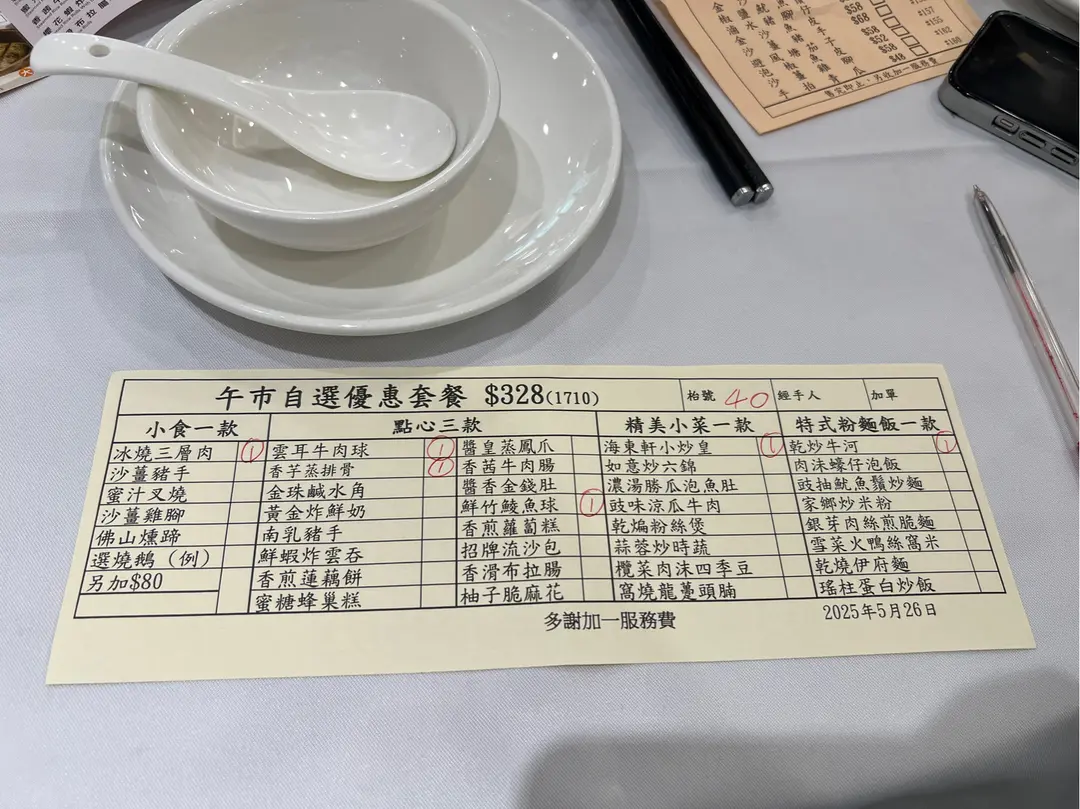 $58
$68
$58
$52
$58
手拍青瓜 $48
售完即止，另收加一服務費
午市自選優惠套餐 $328(1710) 枱號 40 經手人 加單
小食一款 點心三款 精美小菜一款 特式粉麵飯一款
冰燒三層肉 ① 雲耳牛肉球 ① 醬皇蒸鳳爪 海東軒小炒皇 ① 乾炒牛河 ①
沙薑豬手 香芋蒸排骨 ① 香茜牛肉腸 如意炒六錦 肉沬蠔仔泡飯
蜜汁叉燒 金珠鹹水角 醬香金錢肚 濃湯勝瓜泡魚肚 豉抽魷魚鬚炒麵
沙薑雞腳 黃金炸鮮奶 鮮竹鯪魚球 ① 豉味涼瓜牛肉 家鄉炒米粉
佛山燻蹄 南乳豬手 香煎蘿蔔糕 乾煸粉絲煲 銀芽肉絲煎脆麵
選燒鵝（例） 鮮蝦炸雲吞 招牌流沙包 蒜蓉炒時蔬 雪菜火鴨絲窩米
另加$80 香煎蓮藕餅 香滑布拉腸 欖菜肉沫四季豆 乾燒伊府麵
蜜糖蜂巢糕 柚子脆麻花 窩燒龍躉頭腩 瑤柱蛋白炒飯
多謝加一服務費 2025年5月26日